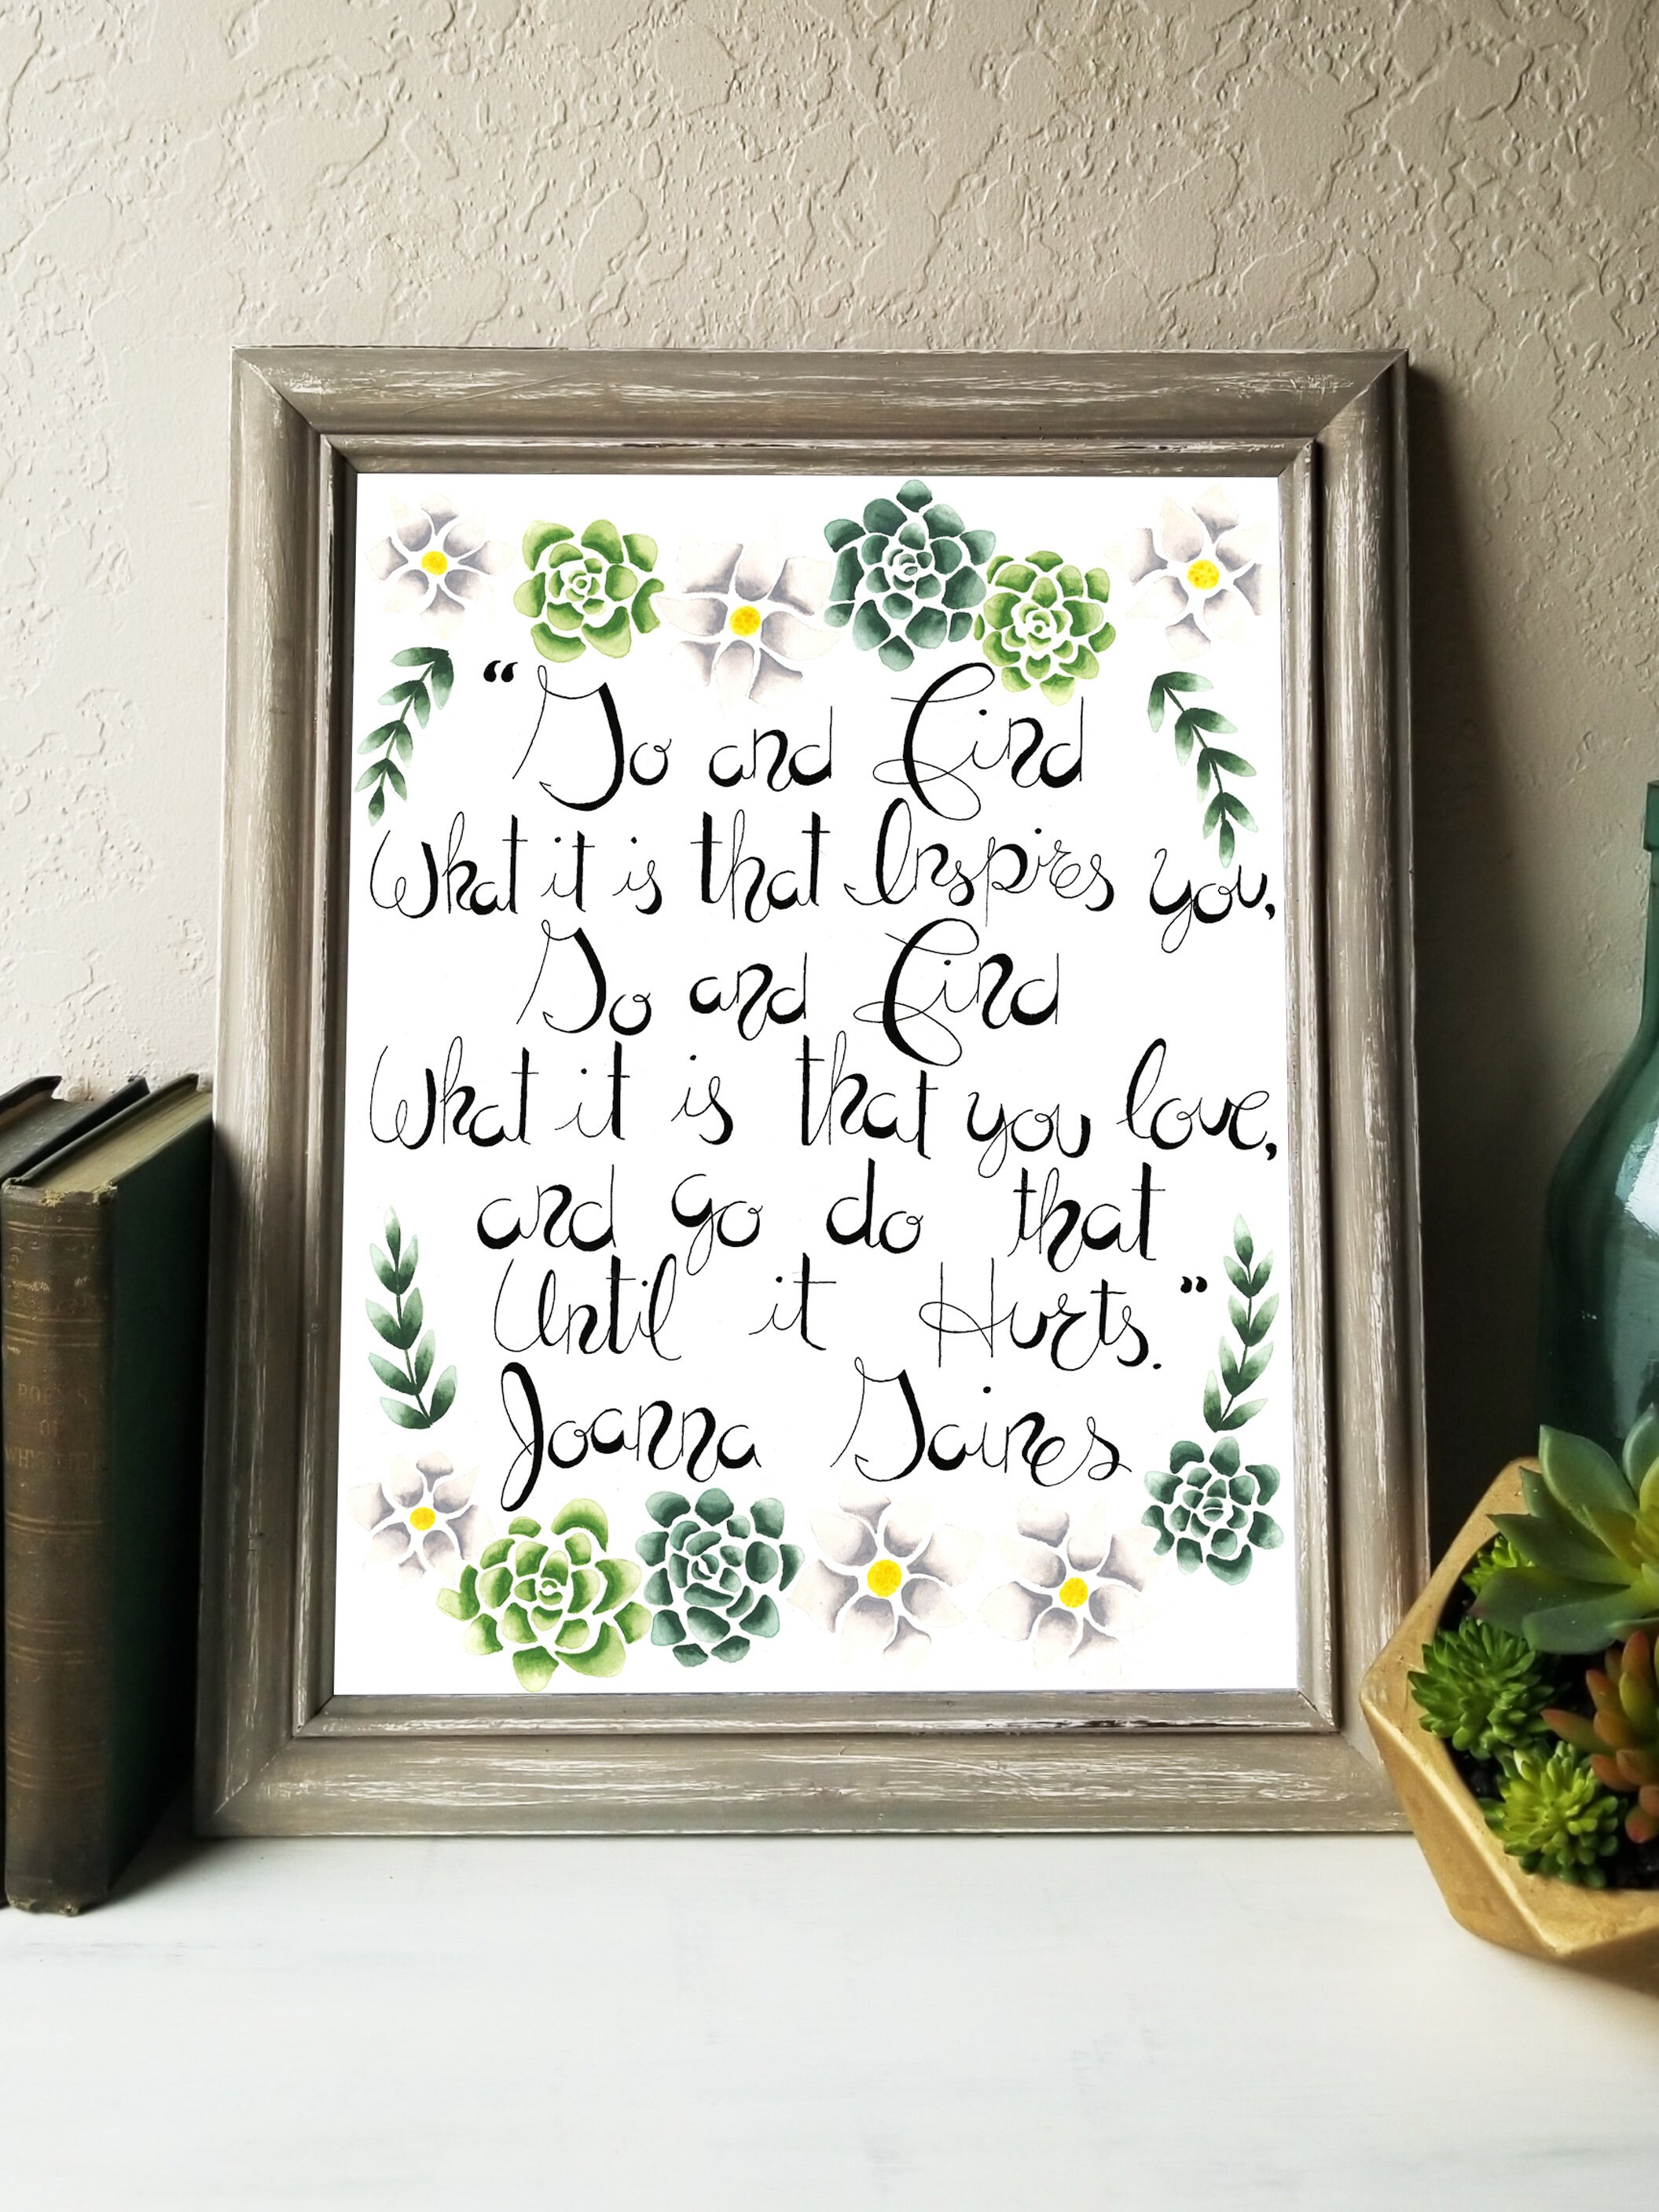 “Go and Find
What it is that Inspires you,
Go and Find
What it is that you love,
and go do that
Until it Hurts.”
Joanna Gaines
POEMS
OF
WHITTIER